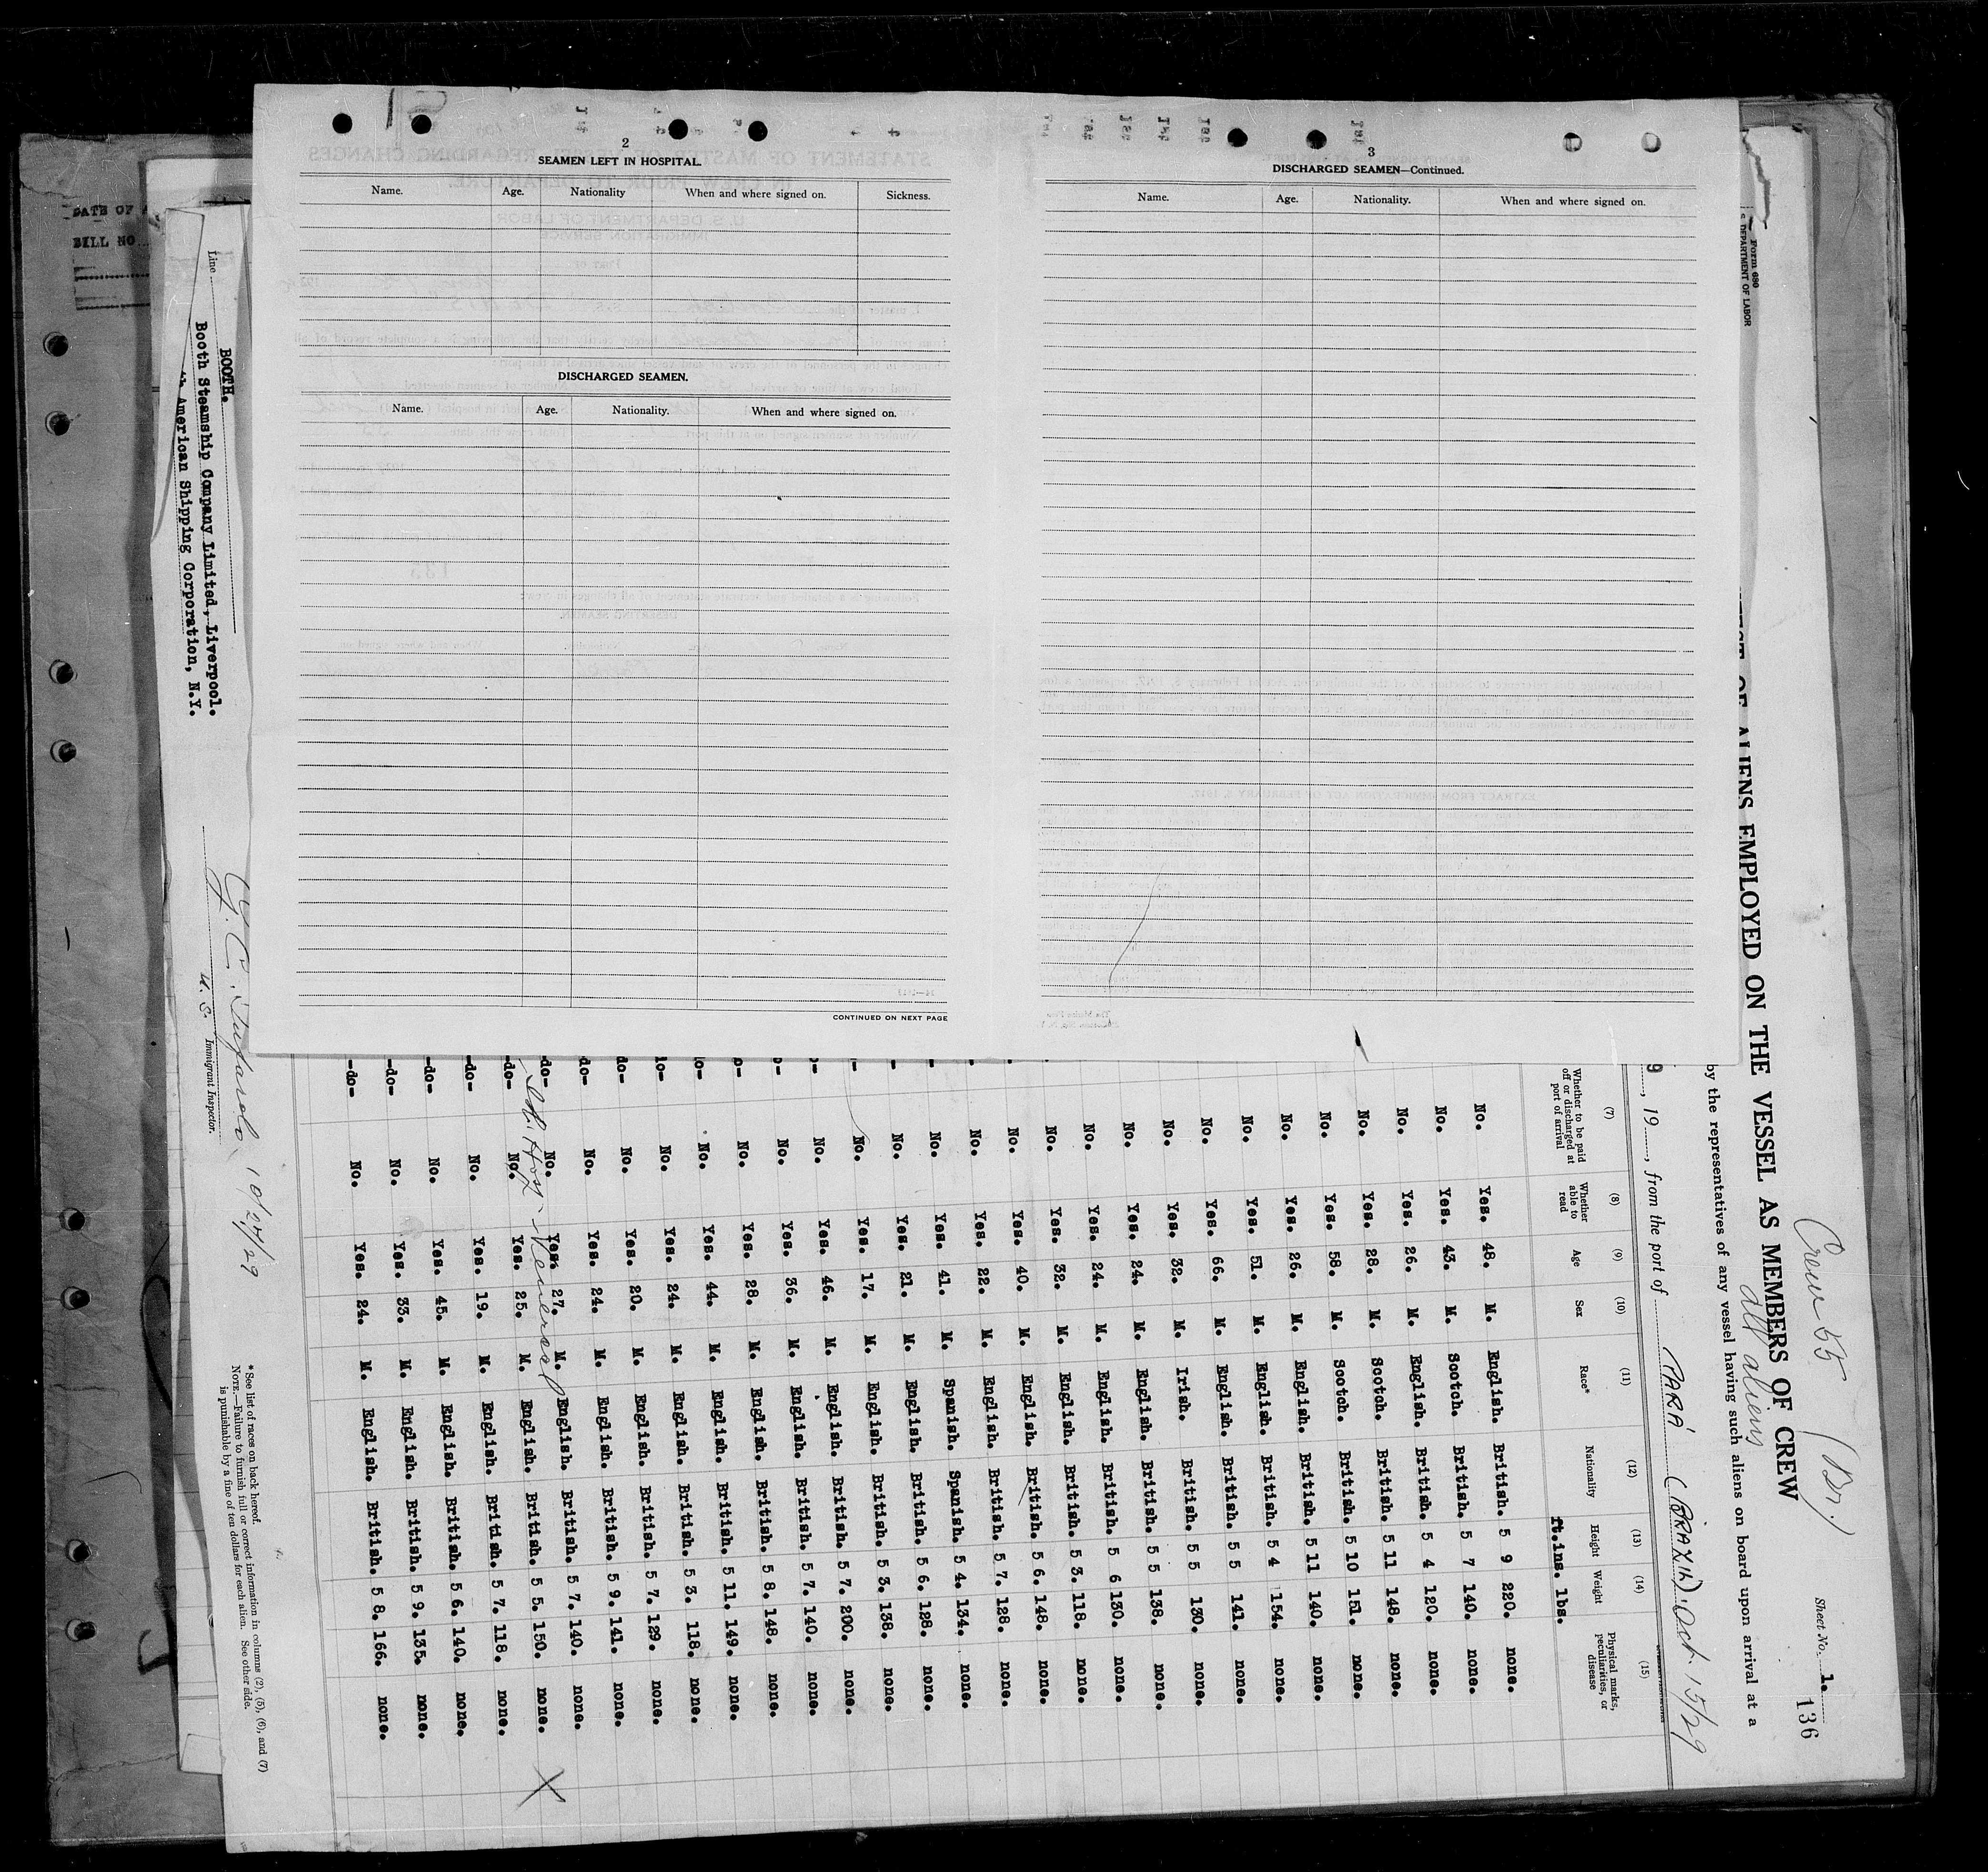 2
SEAMEN LEFT IN HOSPITAL.
Name. Age. Nationality When and where signed on. Sickness.
DISCHARGED SEAMEN.
Name. Age. Nationality. When and where signed on.
CONTINUED ON NEXT PAGE
3
DISCHARGED SEAMEN—Continued.
Name. Age. Nationality. When and where signed on.
DATE OF
BILL NO.
Line
BOOTH.
Booth Steamship Company Limited, Liverpool.
American Shipping Corporation, N.Y.
10/27/29
U. S. Immigrant Inspector.
Form 680
DEPARTMENT OF LABOR
Crew 55 (Br.)
all aliens
Sheet No. 1.
136
OF ALIENS EMPLOYED ON THE VESSEL AS MEMBERS OF CREW
by the representatives of any vessel having such aliens on board upon arrival at a
9, 19, from the port of PARÁ (BRAZIL). Oct. 15/29
(7) (8) (9) (10) (11) (12) (13) (14) (15)
Whether to be paid off or discharged at port of arrival Whether able to read Age Sex Race* Nationality Height Weight Physical marks, peculiarities, or disease
ft.ins. lbs.
No. Yes. 48. M. English. British. 5 9 220. none.
No. Yes. 43. M. Scotch. British. 5 7 140. none.
No. Yes. 26. M. English. British. 5 4 120. none.
No. Yes. 28. M. Scotch. British. 5 11 148. none.
No. Yes. 58. M. Scotch. British. 5 10 151. none.
No. Yes. 26. M. English. British. 5 11 140. none.
No. Yes. 51. M. English. British. 5 4 154. none.
No. Yes. 66. M. English. British. 5 5 141. none.
No. Yes. 32. M. Irish. British. 5 5 130. none.
No. Yes. 24. M. English. British. 5 5 138. none.
No. Yes. 24. M. English. British. 5 6 130. none.
No. Yes. 32. M. English. British. 5 3. 118. none.
No. Yes. 40. M. English. British. 5 6. 148. none.
No. Yes. 22. M. English. British. 5 7. 128. none.
No. Yes. 41. M. Spanish. Spanish. 5 4. 134. none.
No. Yes. 21. M. English. British. 5 6. 128. none.
No. Yes. 17. M. English. British. 5 3. 138. none.
No. Yes. 46. M. English. British. 5 7. 200. none.
No. Yes. 36. M. English. British. 5 7. 140. none.
No. Yes. 28. M. English. British. 5 8. 148. none.
No. Yes. 44. M. English. British. 5 11. 149. none.
No. Yes. 24. M. English. British. 5 3. 118. none.
do- No. Yes. 20. M. English. British. 5 7. 129. none.
do- No. Yes. 24. M. English. British. 5 9. 141. none.
do- No. Yes. 27. M. English. British. 5 7. 140. none.
Hosp - Venereal
-do- No. Yes. 25. M. English. British. 5 5. 150. none. X
-do- No. Yes. 19. M. English. British. 5 7. 118. none.
-do- No. Yes. 45. M. English. British. 5 6. 140. none.
-do- No. Yes. 33. M. English. British. 5 9. 135. none.
-do- No. Yes. 24. M. English. British. 5 8. 166. none.
*See list of races on back hereof.
NOTE.—Failure to furnish full or correct information in columns (2), (5), (6), and (7)
is punishable by a fine of ten dollars for each alien. See other side.